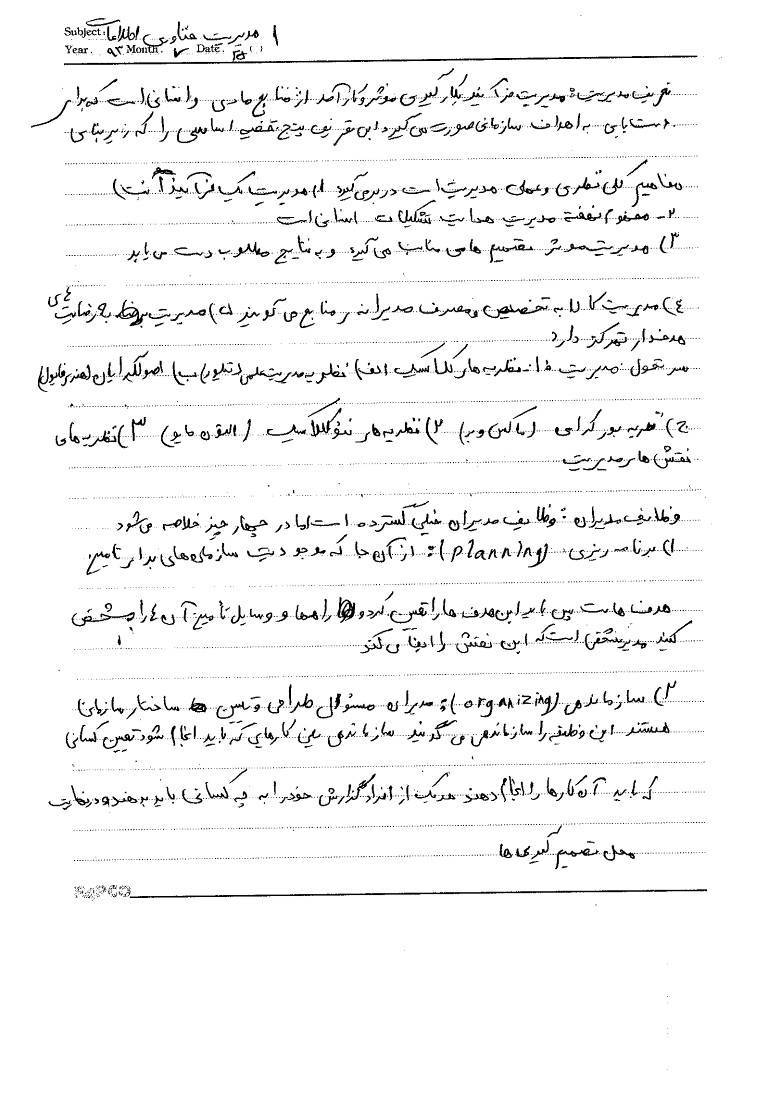 Subject: مدیریت فناوری اطلاعات ۱
Year. ۹۳ Month. ۷ Date. ( )
تعریف مدیریت: مدیریت فرآیند بکارگیری موثر و کارآمد از منابع مادی و انسانی است که برای
دستیابی به اهداف سازمانی صورت می گیرد این تعریف پنج قضیه اساسی را که زیربنای
مفاهیم کلی نظری و عملی مدیریت است در بر می گیرد ۱) مدیریت یک فرآیند است)
۲- مفهوم نهفته مدیریت هدایت تشکیلات انسانی است
۳) مدیریت موثر تصمیم های مناسب می گیرد و به نتایج مطلوب دست می یابد
۴) مدیریت کارا به تخصیص و مصرف مدبرانه منابع می گویند ۵) مدیریت بر فعالیت های
هدفدار تمرکز دارد
سیر تحول مدیریت: ۱- نظریه های کلاسیک الف) نظریه مدیریت علمی (تیلور) ب) اصولگرایان (هنری فایول)
ج) نظریه بور کراسی (ماکس وبر) ۲) نظریه های نئوکلاسیک (التون مایو) ۳) نظریه های
نقش های مدیریت
وظایف مدیران: وظایف مدیران خیلی گسترده است اما در چهار چیز خلاصه می شود
۱) برنامه ریزی (planning): از آن جا که موجودیت سازمان های برای تامین
هدف هاست پس باید این هدف ها را تعیین کرد و راهها و وسایل تامین آن ها را مشخص
کنید مدیریت است که این نقش را ایفا می کند
۲) سازماندهی (organizing): مدیران مسئول طراحی و تعیین ساختار سازمانی
هستند این وظیفه را سازماندهی می گویند سازماندهی یعنی کارهایی که باید انجام شود تعیین کسانی
که باید آن کارها را انجام دهند هر یک از افراد گزارش خود را به چه کسانی باید بدهند و در نهایت
محل تصمیم گیری ها
PAPCO